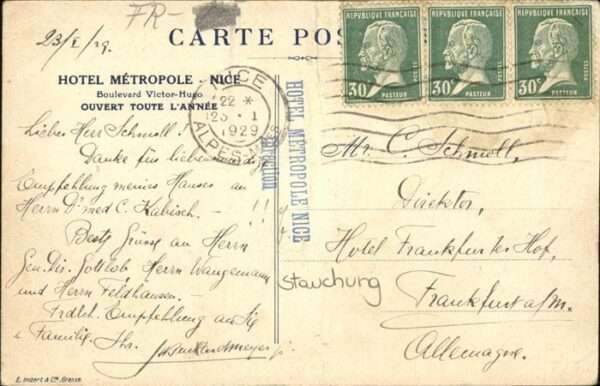 FR-
23/I/29.
CARTE POS
HOTEL MÉTROPOLE - NICE
Boulevard Victor-Hugo
OUVERT TOUTE L'ANNÉE
NICE
22 *
23 · 1
1929
ALPES-M
HOTEL METROPOLE NICE
Direction
RÉPUBLIQUE FRANÇAISE
30c
POSTES
PASTEUR
RÉPUBLIQUE FRANÇAISE
30c
POSTES
PASTEUR
RÉPUBLIQUE FRANÇAISE
30c
POSTES
PASTEUR
Lieber Herr Schmoll!
Danke für liebenswürdige
Empfehlung meines Hauses an
Herrn Dr med C. Kabisch. - !!
Beste Grüsse an Herrn
Gen. Dir. Gottlob Herrn Wangemann
und Herrn Feldhausen.-
Frdlch. Empfehlung an Sie
& Familie. Ihr.
Mr. C. Schmoll,
Direktor,
Hotel Frankfurter Hof,
Frankfurt a/M.
Allemagne.
Stauchung
E. Imbert & Cie, Grasse